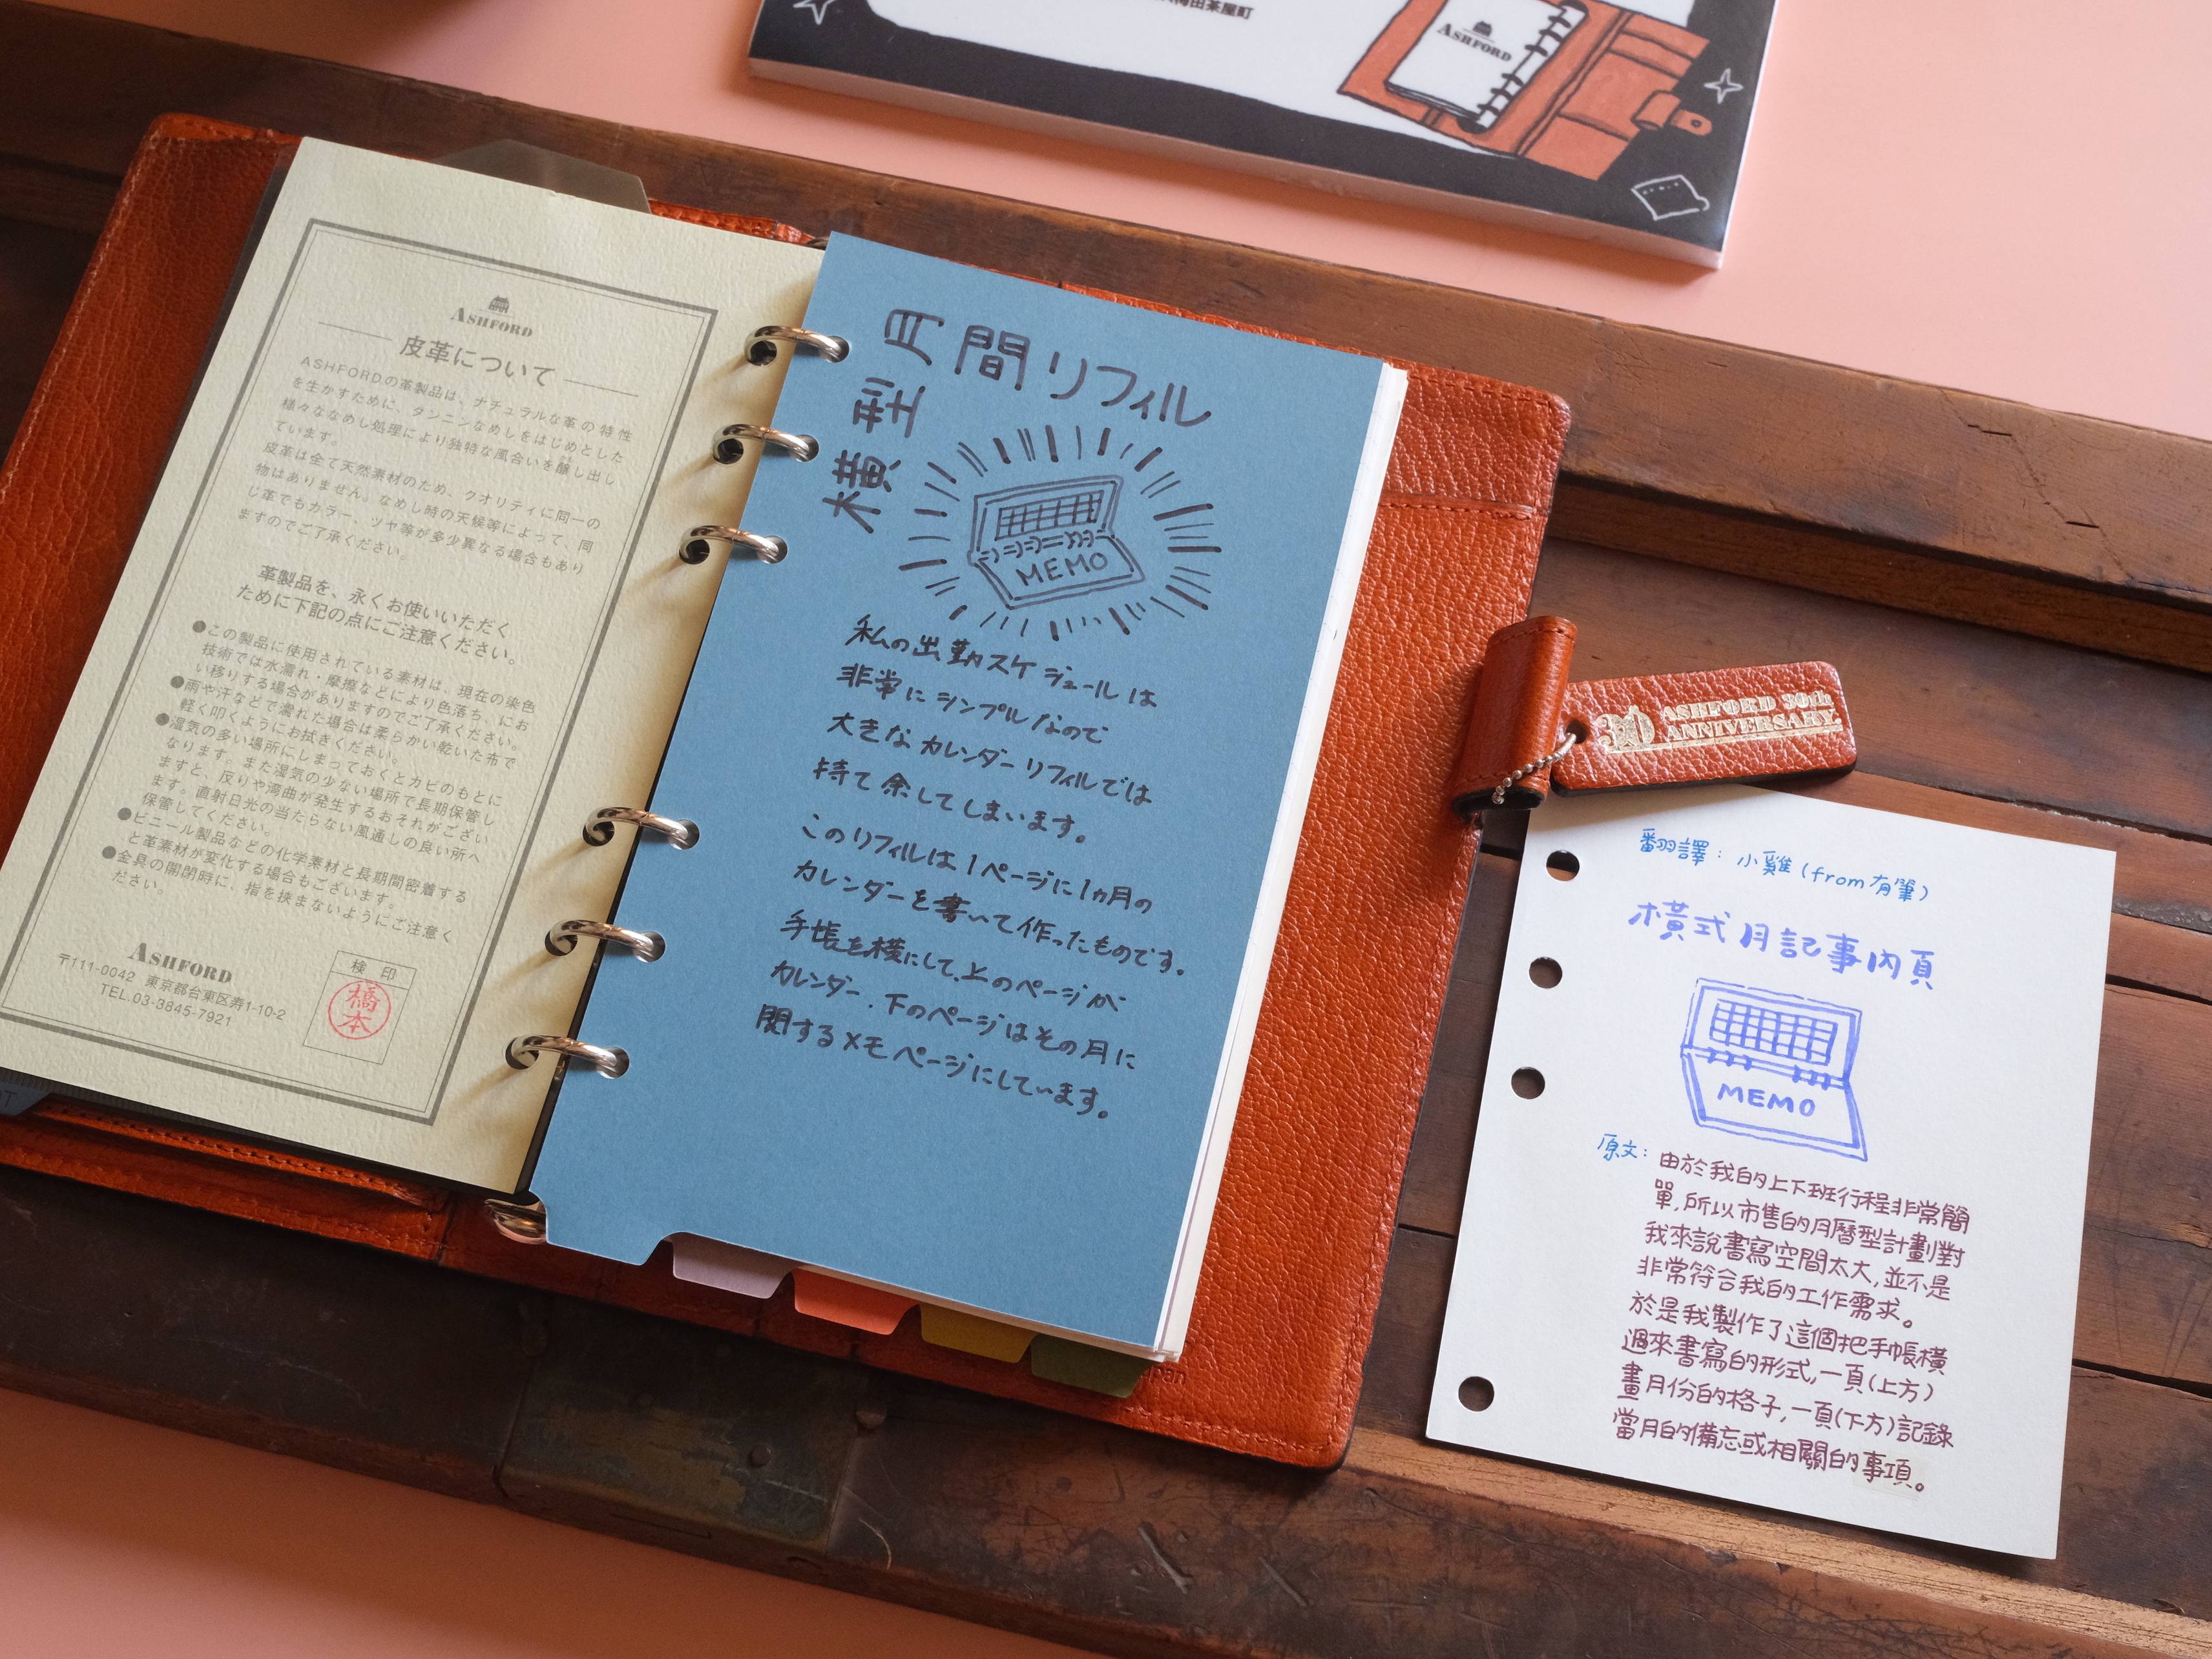 梅田茶屋町
ASHFORD
ASHFORD
皮革について
ASHFORDの革製品は、ナチュラルな革の特性
を生かすために、タンニンなめしをはじめとした
様々ななめし処理により独特な風合いを醸し出し
ています。
皮革は全て天然素材のため、クオリティに同一の
物はありません。なめし時の天候等によって、同
じ革でもカラー、ツヤ等が多少異なる場合もあり
ますのでご了承ください。
革製品を、永くお使いいただく
ために下記の点にご注意ください。
●この製品に使用されている素材は、現在の染色
技術では水濡れ・摩擦などにより色落ち、にお
い移りする場合がありますのでご了承ください。
●雨や汗などで濡れた場合は柔らかい乾いた布で
軽く叩くようにお拭きください。
●湿気の多い場所にしまっておくとカビのもとに
なります。また湿気の少ない場所で長期保管し
ますと、反りや湾曲が発生するおそれがござい
ます。直射日光の当たらない風通しの良い所へ
保管してください。
●ビニール製品などの化学素材と長期間密着する
と革素材が変化する場合もございます。
●金具の開閉時に、指を挟まないようにご注意く
ださい。
ASHFORD
〒111-0042 東京都台東区寿1-10-2
TEL.03-3845-7921
検印
橋本
月間リフィル
横型
MEMO
私の出勤スケジュールは
非常にシンプルなので
大きなカレンダーリフィルでは
持て余してしまいます。
このリフィルは1ページに1ヵ月の
カレンダーを書いて作ったものです。
手帳を横にして、上のページが
カレンダー、下のページはその月に
関するメモページにしています。
30 ASHFORD 30th
ANNIVERSARY
翻譯：小雞(from有筆)
橫式月記事內頁
MEMO
原文：由於我的上下班行程非常簡
單,所以市售的月曆型計劃對
我來說書寫空間太大,並不是
非常符合我的工作需求。
於是我製作了這個把手帳橫
過來書寫的形式,一頁(上方)
畫月份的格子,一頁(下方)記錄
當月的備忘或相關的事項。